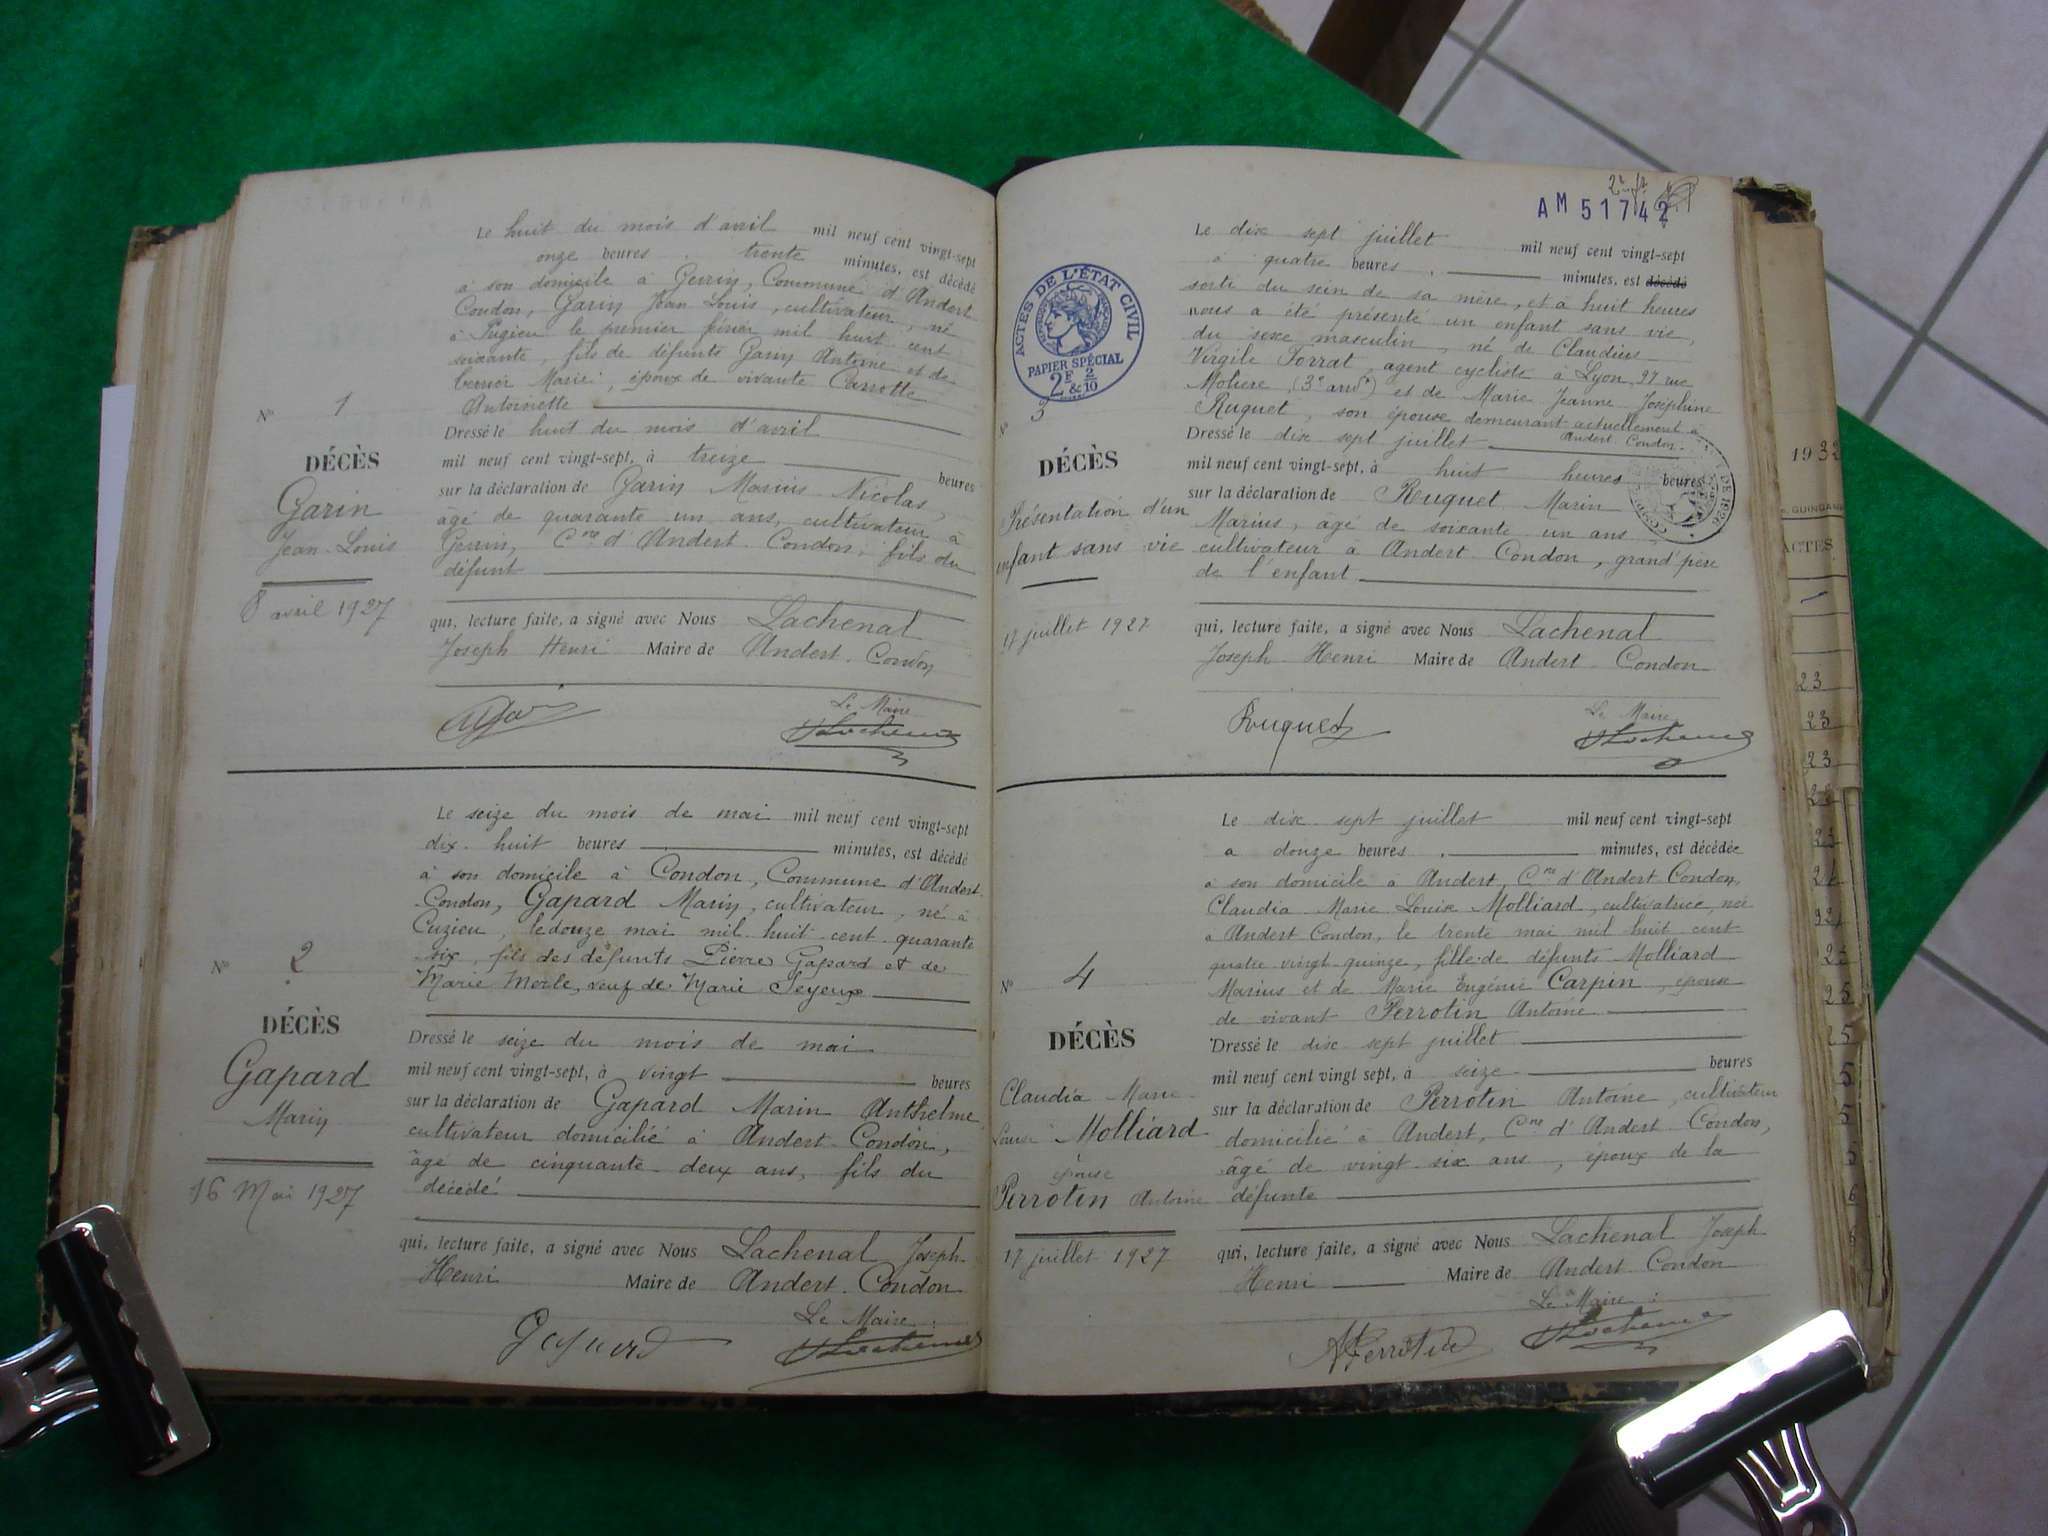 Le huit du mois d'avril mil neuf cent vingt-sept
onze heures trente minutes, est décédé
à son domicile à Gerrin, Commune d'Andert
Condon, Garin Jean Louis, cultivateur, né
à Pugieu le premier février mil huit cent
soixante, fils de défunts Garin Antoine et de
Marie, époux de vivante Carrotte
Antoinette
N° 1
DÉCÈS
Garin
Jean-Louis
8 avril 1927
Dressé le huit du mois d'avril
mil neuf cent vingt-sept, à treize heures
sur la déclaration de Garin Marius Nicolas,
âgé de quarante un ans, cultivateur à
Gerrin, Cne d'Andert-Condon, fils du
défunt
qui, lecture faite, a signé avec Nous Lachenal
Joseph Henri Maire de Andert-Condon
Le Maire
Le seize du mois de mai mil neuf cent vingt-sept
dix-huit heures minutes, est décédé
à son domicile à Condon, Commune d'Andert-
Condon, Gapard Marin, cultivateur, né à
Cuzieu, le douze mai mil huit cent quarante
six, fils des défunts Pierre Gapard et de
Marie Merle, veuf de Marie Seyeux
N° 2
DÉCÈS
Gapard
Marin
16 Mai 1927
Dressé le seize du mois de mai
mil neuf cent vingt-sept, à vingt heures
sur la déclaration de Gapard Marin Anthelme
cultivateur domicilié à Andert-Condon,
âgé de cinquante-deux ans, fils du
décédé
qui, lecture faite, a signé avec Nous Lachenal Joseph
Henri Maire de Andert-Condon
Le Maire :
Gapard
AM 51742
ACTES DE L'ÉTAT CIVIL
PAPIER SPÉCIAL
2F & 2/10
Le dix sept juillet mil neuf cent vingt-sept
à quatre heures minutes, est décédé
sorti du sein de sa mère, et à huit heures
nous a été présenté un enfant sans vie,
du sexe masculin, né de Claudius
Virgile Forrat, agent cycliste à Lyon, 97 rue
Molière (3e arrdt) et de Marie Jeanne Joséphine
Ruguet, son épouse demeurant actuellement à
Andert-Condon.
N° 3
DÉCÈS
Présentation d'un
enfant sans vie
17 juillet 1927
Dressé le dix sept juillet
mil neuf cent vingt-sept, à huit heures heures
sur la déclaration de Ruguet Marin
Marius, âgé de soixante un ans
cultivateur à Andert-Condon, grand'père
de l'enfant
qui, lecture faite, a signé avec Nous Lachenal
Joseph Henri Maire de Andert-Condon
Le Maire
Ruguet
Le dix sept juillet mil neuf cent vingt-sept
à douze heures minutes, est décédée
à son domicile à Andert, Cne d'Andert-Condon,
Claudia Marie Louise Molliard, cultivatrice, née
à Andert-Condon, le trente mai mil huit cent
quatre vingt quinze, fille de défunts Molliard
Marius et de Marie Eugénie Carpin, épouse
de vivant Perrotin Antoine
N° 4
DÉCÈS
Claudia Marie
Louise Molliard
épouse
Perrotin Antoine
17 juillet 1927
Dressé le dix sept juillet
mil neuf cent vingt sept, à seize heures
sur la déclaration de Perrotin Antoine, cultivateur
domicilié à Andert, Cne d'Andert-Condon,
âgé de vingt-six ans, époux de la
défunte
qui, lecture faite, a signé avec Nous Lachenal Joseph
Henri Maire de Andert-Condon
Le Maire :
A Perrotin
1932
ACTES
23
23
23